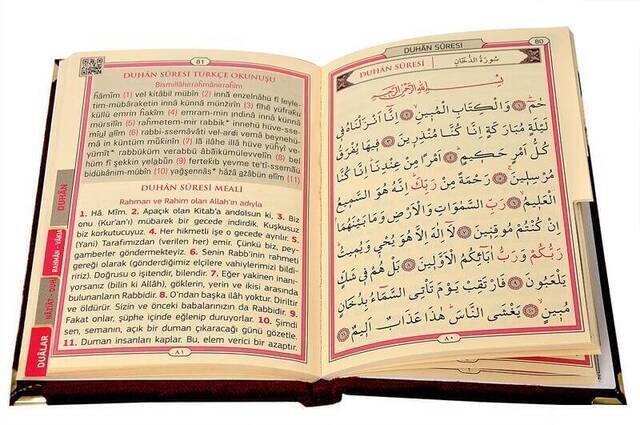 80
DUHÂN SÛRESİ
DUHÂN SÛRESİ سُورَةُ الدُّخَانِ
بِسْمِ اللهِ الرَّحْمٰنِ الرَّحِيمِ
حٰمٓ ﴿١﴾ وَالْكِتَابِ الْمُبِينِ ﴿٢﴾ اِنَّٓا اَنْزَلْنَاهُ فِي
لَيْلَةٍ مُبَارَكَةٍ اِنَّا كُنَّا مُنْذِرِينَ ﴿٣﴾ فِيهَا يُفْرَقُ
كُلُّ اَمْرٍ حَكِيمٍ ﴿٤﴾ اَمْرًا مِنْ عِنْدِنَا اِنَّا كُنَّا
مُرْسِلِينَ ﴿٥﴾ رَحْمَةً مِنْ رَبِّكَ اِنَّهُ هُوَ السَّمِيعُ
الْعَلِيمُ ﴿٦﴾ رَبِّ السَّمٰوَاتِ وَالْاَرْضِ وَمَا بَيْنَهُمَا
اِنْ كُنْتُمْ مُوقِنِينَ ﴿٧﴾ لَٓا اِلٰهَ اِلَّا هُوَ يُحْيِي وَيُمِيتُ
رَبُّكُمْ وَرَبُّ اٰبَٓائِكُمُ الْاَوَّلِينَ ﴿٨﴾ بَلْ هُمْ فِي شَكٍّ
يَلْعَبُونَ ﴿٩﴾ فَارْتَقِبْ يَوْمَ تَأْتِي السَّمَٓاءُ بِدُخَانٍ
مُبِينٍ ﴿١٠﴾ يَغْشَى النَّاسَ هٰذَا عَذَابٌ اَلِيمٌ ﴿١١﴾
٨٠
81
DUHÂN SÛRESİ TÜRKÇE OKUNUŞU
Bismillâhirrahmânirrahîm
ḥâmîm (1) vel kitâbil mübîn (2) innâ enzelnâhü fî leyle-
tim-mübâraketin innâ künnâ münzirîn (3) fîhê yüfraku
küllü emrin ḥakîm (4) emram-min ındinâ innâ künnâ
mürsilîn (5) raḥmetem-mir rabbik* innehü hüve-sse-
mîul alîm (6) rabbi-ssemâvâti vel-ardı vemâ beynehü-
mâ in küntüm mûkinîn (7) lâ ilâhe illâ hüve yüḥyî ve-
yümît* rabbüküm verabbü âbâikümülevvelîn (8) bel
hüm fî şekkin yelğabûn (9) fertekıb yevme te'tî-ssemâü
bidüḫânim-mübîn (10) yağşennâs* hâzâ azâbün elîm (11)
DUHÂN SÛRESİ MEALİ
Rahman ve Rahim olan Allah'ın adıyla
1. Hâ. Mîm. 2. Apaçık olan Kitab'a andolsun ki, 3. Biz
onu (Kur'an'ı) mübarek bir gecede indirdik. Kuşkusuz
biz korkutucuyuz. 4. Her hikmetli işe o gecede ayrılır. 5.
(Yani) Tarafımızdan (verilen her) emir. Çünkü biz, pey-
gamberler göndermekteyiz. 6. Senin Rabb'inin rahmeti
gereği olarak (gönderdiğimiz elçilere vahiylerimizi bildi-
ririz). Doğrusu o işitendir, bilendir. 7. Eğer yakinen inanı-
yorsanız (bilin ki Allah), göklerin, yerin ve ikisi arasında
bulunanların Rabbidir. 8. O'ndan başka ilâh yoktur. Diriltir
ve öldürür. Sizin ve önceki babalarınızın da Rabbidir. 9.
Fakat onlar, şüphe içinde eğlenip duruyorlar. 10. Şimdi
sen, semanın, açık bir duman çıkaracağı günü gözetle.
11. Duman insanları kaplar. Bu, elem verici bir azaptır.
٨١
DUHÂN
RAHMÂN - VÂKIA
DUÂLAR